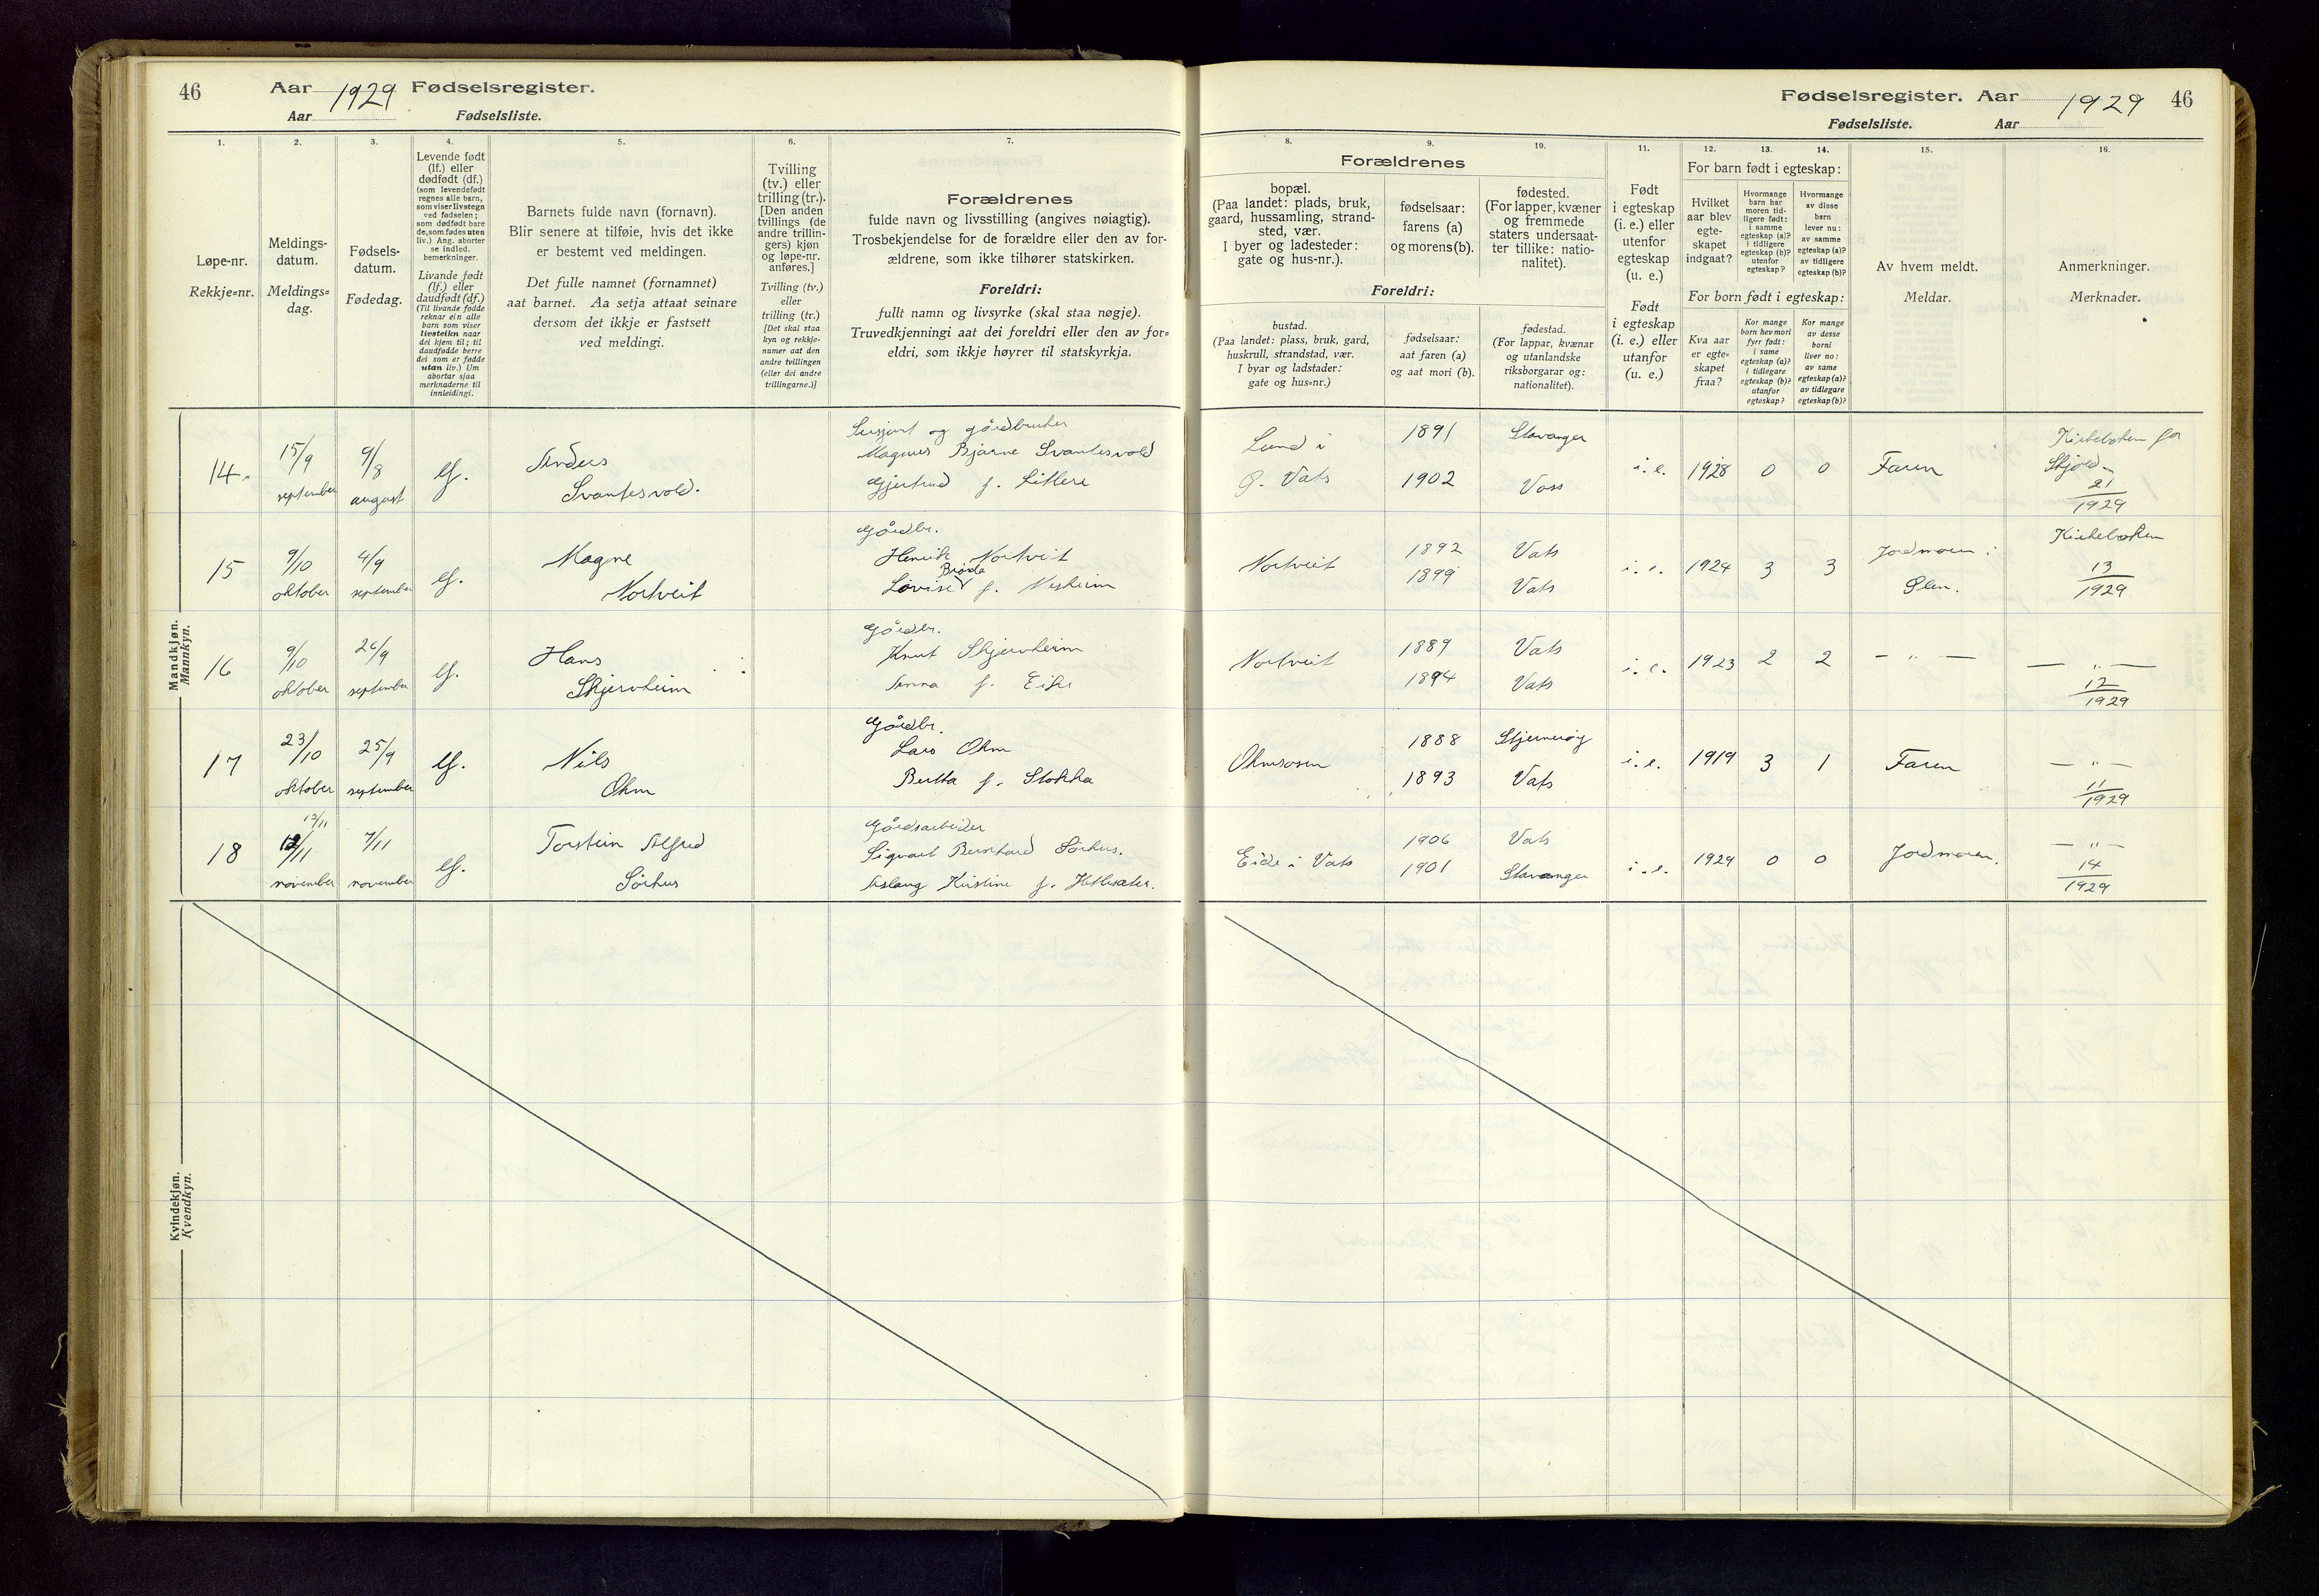 46
Aar 1929 Fødselsregister.
Aar Fødselsliste.
1.
Løpe-nr.
Rekkje=nr.
2.
Meldings-
datum.
Meldings=
dag.
3.
Fødsels-
datum.
Fødedag.
4.
Levende født
(lf.) eller
dødfødt (df.)
(som levendefødt
regnes alle barn,
som viser livstegn
ved fødselen;
som dødfødt bare
de, som fødes uten
liv.) Ang. aborter
se indled.
bemerkninger.
Livande født
(lf.) eller
daudfødt (df.)
(Til livande fødde
reknar ein alle
barn som viser
livsteikn naar
dei kjem til; til
daudfødde berre
dei som er fødde
utan liv.) Um
abortar sjaa
merknaderne til
innleidingi.
5.
Barnets fulde navn (fornavn).
Blir senere at tilføie, hvis det ikke
er bestemt ved meldingen.
Det fulle namnet (fornamnet)
aat barnet. Aa setja attaat seinare
dersom det ikkje er fastsett
ved meldingi.
6.
Tvilling
(tv.) eller
trilling (tr.).
[Den anden
tvillings (de
andre trillin-
gers) kjøn
og løpe-nr.
anføres.]
Tvilling (tv.)
eller
trilling (tr.)
[Det skal staa
kyn og rekkje-
numer aat den
andre tvillingen
(eller dei andre
trillingarne.)]
7.
Forældrenes
fulde navn og livsstilling (angives nøiagtig).
Trosbekjendelse for de forældre eller den av for-
ældrene, som ikke tilhører statskirken.
Foreldri:
fullt namn og livsyrke (skal staa nøgje).
Truvedkjenningi aat dei foreldri eller den av for=
eldri, som ikkje høyrer til statskyrkja.
Mandkjøn.
Mannkyn.
14.
15/9
september
9/8
august
lf.
Anders
Svantesvold.
og gårdbruker
Magnus Bjarne Svantesvold
Gjertrud f. Litlere
15
9/10
oktober
4/9
september
lf.
Magne
Nortveit
Gårdbr.
Henrik Nortveit
Brøda
Lovise f. Nesheim
16
9/10
oktober
26/9
september
lf.
Hans
Skjerveheim
Gårdbr.
Knut Skjerveheim
Anna f. Eike
17
23/10
oktober
25/9
september
lf.
Nils
Ohm
Gårdbr.
Lars Ohm
Berta f. Stokka
18
12/11
12/11
november
7/11
november
lf.
Torstein Alfred
Sørhus
Gårdsarbeider
Sigvart Bernhard Sørhus.
Aslaug Kristine f. Hetlesæter.
Kvindekjøn.
Kvendkyn.
Fødselsregister. Aar 1929 46
Fødselsliste. Aar
Forældrenes
8.
bopæl.
(Paa landet: plads, bruk,
gaard, hussamling, strand-
sted, vær.
I byer og ladesteder:
gate og hus-nr.).
9.
fødselsaar:
farens (a)
og morens(b).
10.
fødested.
(For lapper, kvæner
og fremmede
staters undersaat-
ter tillike: natio-
nalitet).
Foreldri:
bustad.
(Paa landet: plass, bruk, gard,
huskrull, strandstad, vær.
I byar og ladstader:
gate og hus=nr.)
fødselsaar:
aat faren (a)
og aat mori (b).
fødestad.
(For lappar, kvænar
og utanlandske
riksborgarar og:
nationalitet).
11.
Født
i egteskap
(i. e.) eller
utenfor
egteskap
(u. e.)
Født
i egteskap
(i. e.) eller
utanfor
(u. e.)
12. 13. 14.
For barn født i egteskap:
Hvilket
aar blev
egte-
skapet
indgaat?
Hvormange
barn har
moren tid-
ligere født:
i samme
egteskap (a)?
i tidligere
egteskap (b)?
utenfor
egteskap?
Hvormange
av disse
barn
lever nu:
av samme
egteskap (a)?
av tidligere
egteskap (b)?
For born født i egteskap:
Kva aar
er egte=
skapet
fraa?
Kor mange
born hev mori
fyrr født:
i same
egteskap (a)?
i tidlegare
egteskap (b)?
utanfor
egteskap?
Kor mange
av desse
borni
liver no:
av same
egteskap (a)?
av tidlegare
egteskap (b)?
15.
Av hvem meldt.
Meldar.
16.
Anmerkninger.
Merknader.
Lund i
Ø. Vats
1891
1902
Stavanger
Voss
i. e.
1928 0 0
Faren
Kirkeboken for
Skjold
21
1929
Nortveit
1892
1899
Vats
Vats
i. e.
1924 3 3
Jordmoren i
Ølen.
Kirkeboken
13
1929
Nortveit
1889
1894
Vats
Vats
i. e.
1923 2 2
— " —
— " —
12
1929
Ohmsosen
1888
1893
Stjernerøy
Vats
i. e.
1919 3 1
Faren
— " —
11
1929
Eide i Vats
1906
1901
Vats
Stavanger
i. e.
1929 0 0
Jordmoren.
— " —
14
1929